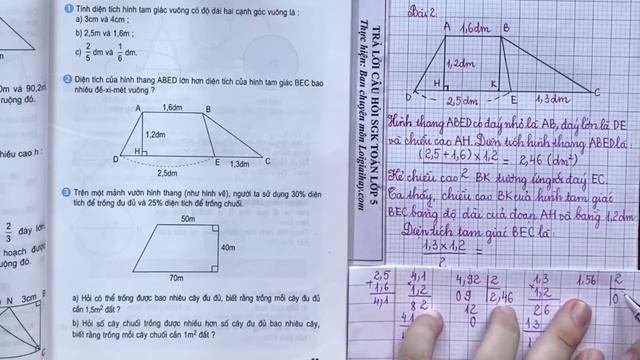 1 Tính diện tích hình tam giác vuông có độ dài hai cạnh góc vuông là :
a) 3cm và 4cm ;
b) 2,5m và 1,6m ;
c) 2/5 dm và 1/6 dm.
2 Diện tích của hình thang ABED lớn hơn diện tích của hình tam giác BEC bao
nhiêu đề-xi-mét vuông ?
A 1,6dm B
1,2dm
D H E 1,3dm C
2,5dm
3 Trên một mảnh vườn hình thang (như hình vẽ), người ta sử dụng 30% diện
tích để trồng đu đủ và 25% diện tích để trồng chuối.
50m
40m
70m
a) Hỏi có thể trồng được bao nhiêu cây đu đủ, biết rằng trồng mỗi cây đu đủ
cần 1,5m² đất ?
b) Hỏi số cây chuối trồng được nhiều hơn số cây đu đủ bao nhiêu cây,
biết rằng trồng mỗi cây chuối cần 1m² đất ?
0m và 90,2m
ruộng đó.
hiều cao h :
2/3 đáy lớn
hoạch được
uộng đó.
N 3cm B
TRẢ LỜI CÂU HỎI SGK TOÁN LỚP 5
Thực hiện: Ban chuyên môn Loigiaihay.com
Bài 2
A 1,6dm B
1,2dm
D H K E C
2,5dm 1,3dm
Hình thang ABED có đáy nhỏ là AB, đáy lớn là DE
và chiều cao AH. Diện tích hình thang ABED là:
(2,5 + 1,6) × 1,2 / 2 = 2,46 (dm²)
Kẻ chiều cao BK tương ứng với đáy EC.
Ta thấy, chiều cao BK của hình tam giác
BEC bằng độ dài của đoạn AH và bằng 1,2dm
Diện tích tam giác BEC là:
1,3 × 1,2 / 2 =
2,5 4,1 4,92 2 1,3 1,56 2
+1,6 ×1,2 09 2,46 ×1,2 0
4,1 82 12 26
41 0 13